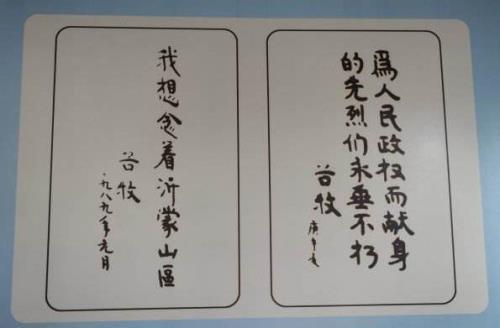 爲人民政权而献身
的先烈们永垂不朽
谷牧
庚午
我想念着沂蒙山區
谷牧
一九八九年元月